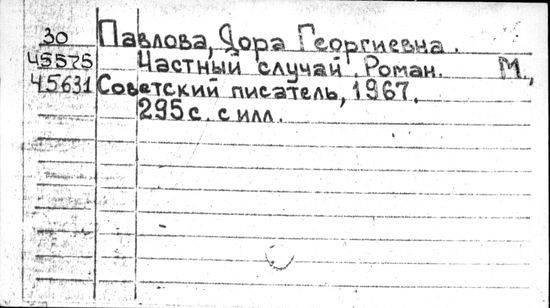 30 Павлова, Дора Георгиевна.
45575 Частный случай. Роман. М.,
45631 Советский писатель, 1967.
295 с. с илл.